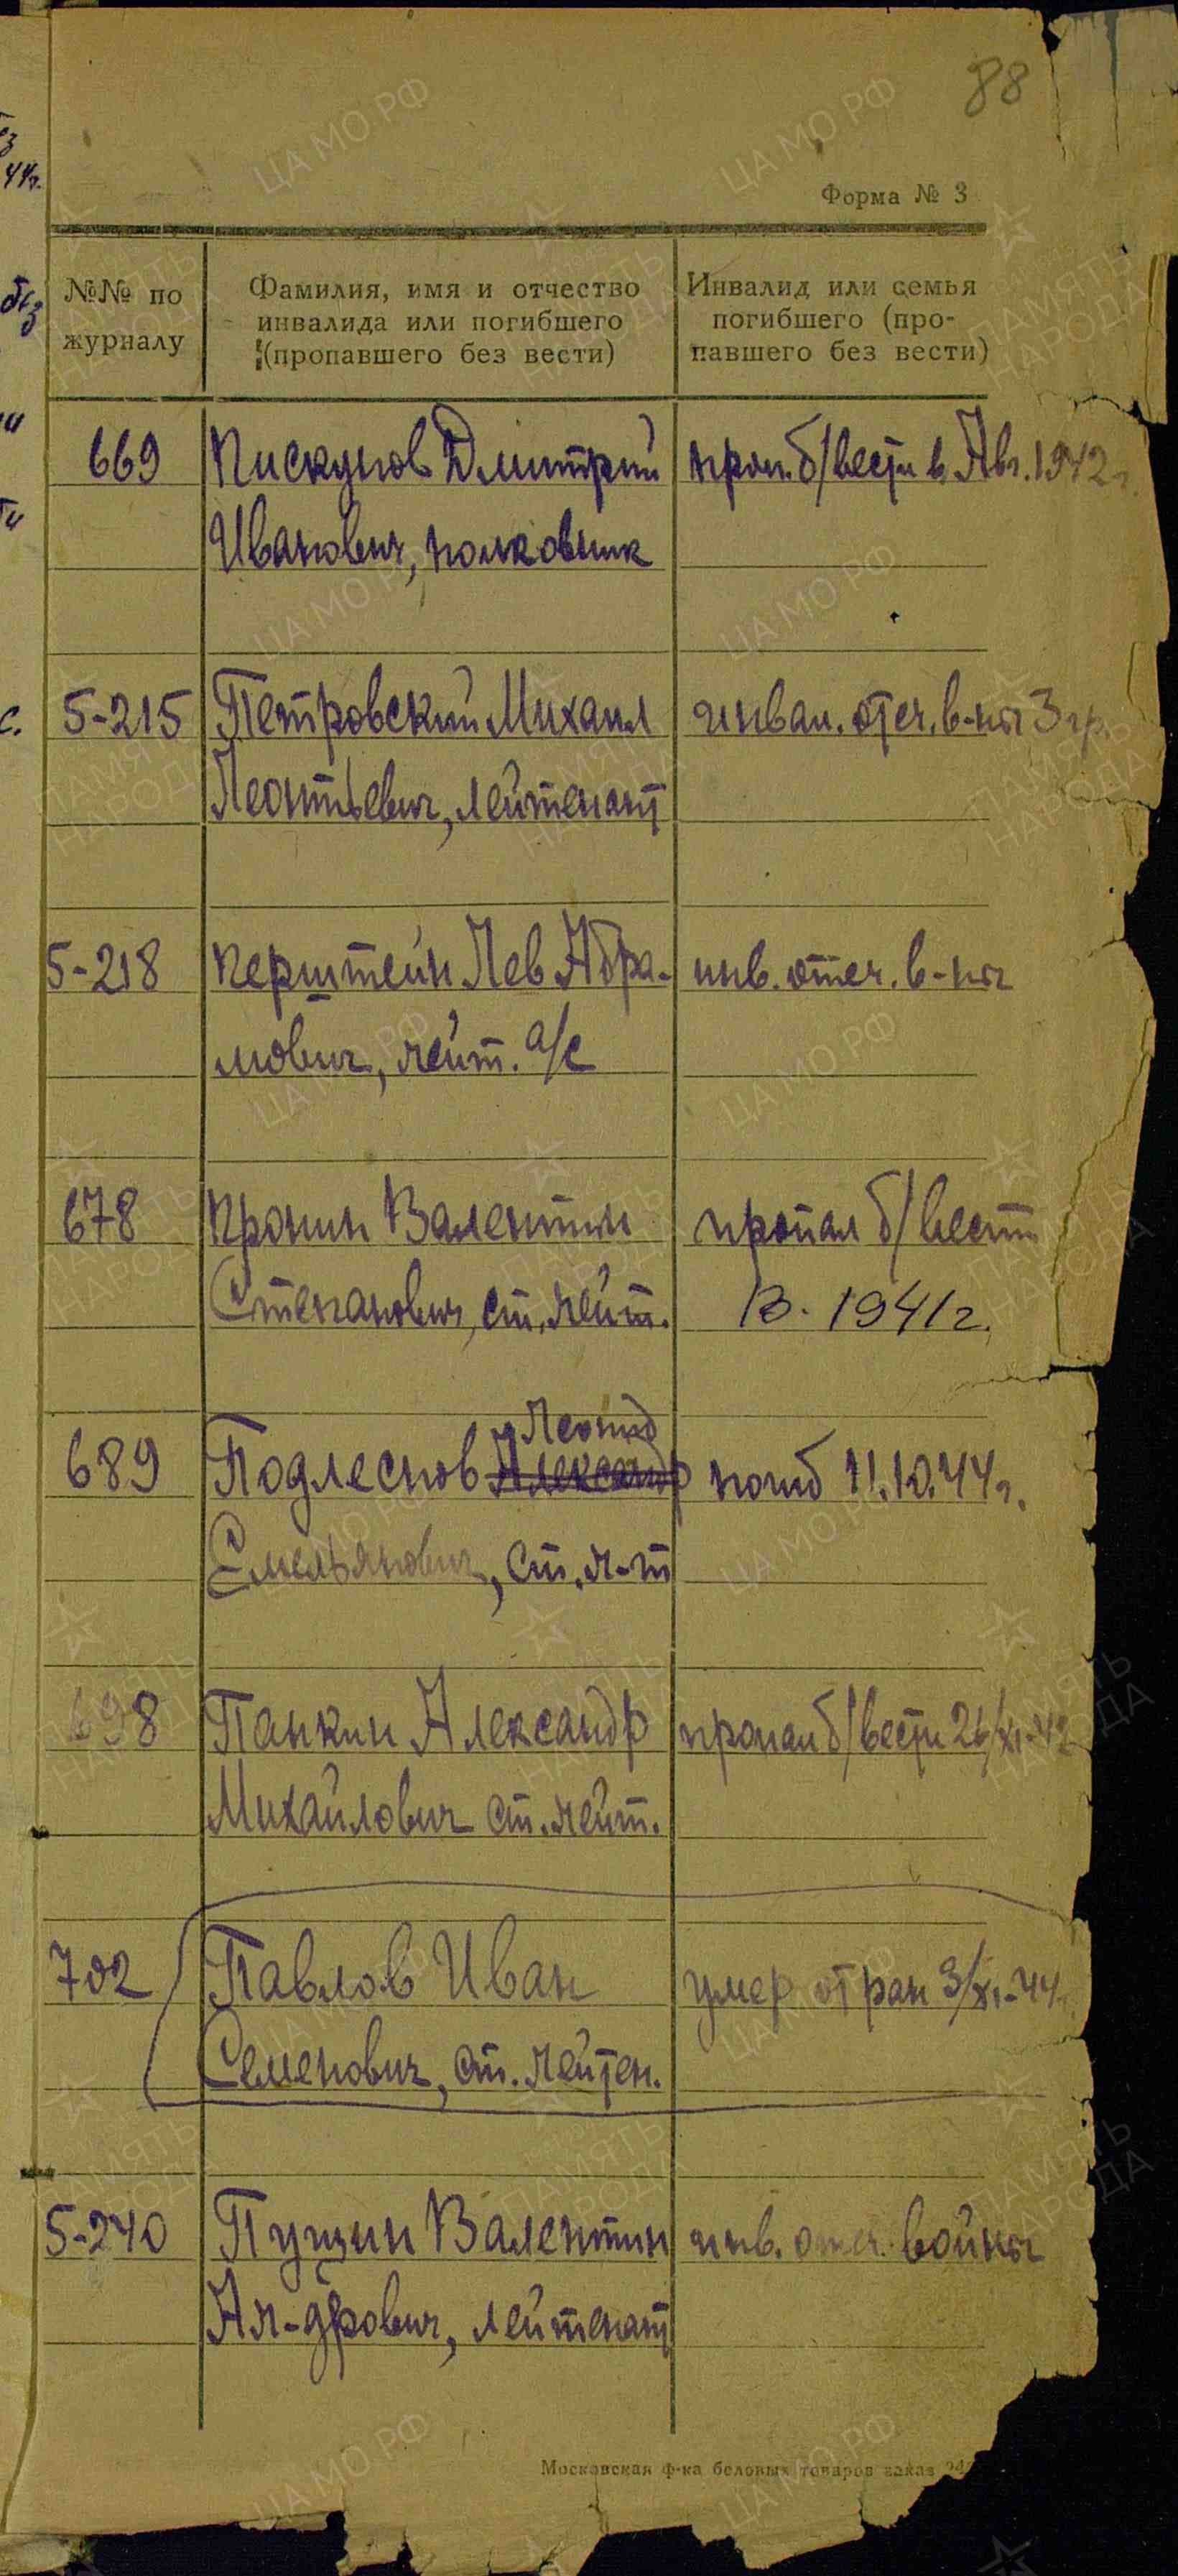 88
Форма № 3
№№ по журналу
Фамилия, имя и отчество
инвалида или погибшего
(пропавшего без вести)
Инвалид или семья
погибшего (про-
павшего без вести)
669 Пискунов Дмитрий проп. б/вести в Авг. 1942 г.
Иванович, полковник
5-215 Петровский Михаил инвал. отеч. в-ны 3 гр.
Леонтьевич, лейтенант
5-218 Перштейн Лев Абра- инв. отеч. в-ны
мович, лейт. а/с
678 Пронин Валентин пропал б/вести
Степанович, ст. лейт. В. 1941 г.
Леонид
689 Подлеснов Александр погиб 11.10.44 г.
Емельянович, ст. л-т
698 Панкин Александр пропал б/вести 26/XI-42
Михайлович ст. лейт.
702 Павлов Иван умер от ран 3/XI-44
Семенович, ст. лейтен.
5-240 Пущин Валентин инв. отеч. войны
Ал-дрович, лейтенант
Московская ф-ка беловых товаров заказ
ЦА МО РФ
ПАМЯТЬ НАРОДА